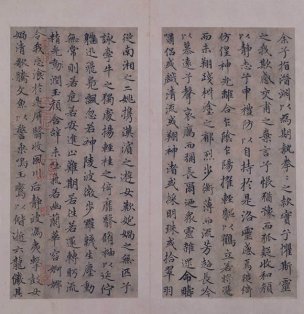 余兮指潛淵以為期執拳〻之款實兮懼斯靈
之我欺感交甫之棄言兮悵猶豫而狐疑收和顏
以靜志兮申禮防以自持於是洛靈感焉徙倚
仿偟神光離合乍陰乍陽擢輕軀以鶴立若將飛
而未翔踐椒塗之郁烈兮步蘅薄而流芳超長吟
以慕遠兮聲哀厲而彌長爾迺眾靈雜遝命疇
嘯侶或戲清流或翔神渚或採明珠或拾翠羽
從南湘之二妃攜漢濱之遊女歎匏瓜之無匹兮
詠牽牛之獨處揚輕袿之倚靡翳脩袖以延佇
體迅飛鳧飄忽若神陵波微步羅韈生塵動
無常則若危若安進止難期若往若還轉眄流
精光潤玉顏含辭未吐氣若幽蘭華容婀娜
令我忘飡於是屏翳收風川后靜波馮夷擊鼓女
媧清歌騰文魚以警乘鳴玉鸞以偕逝六龍儼其